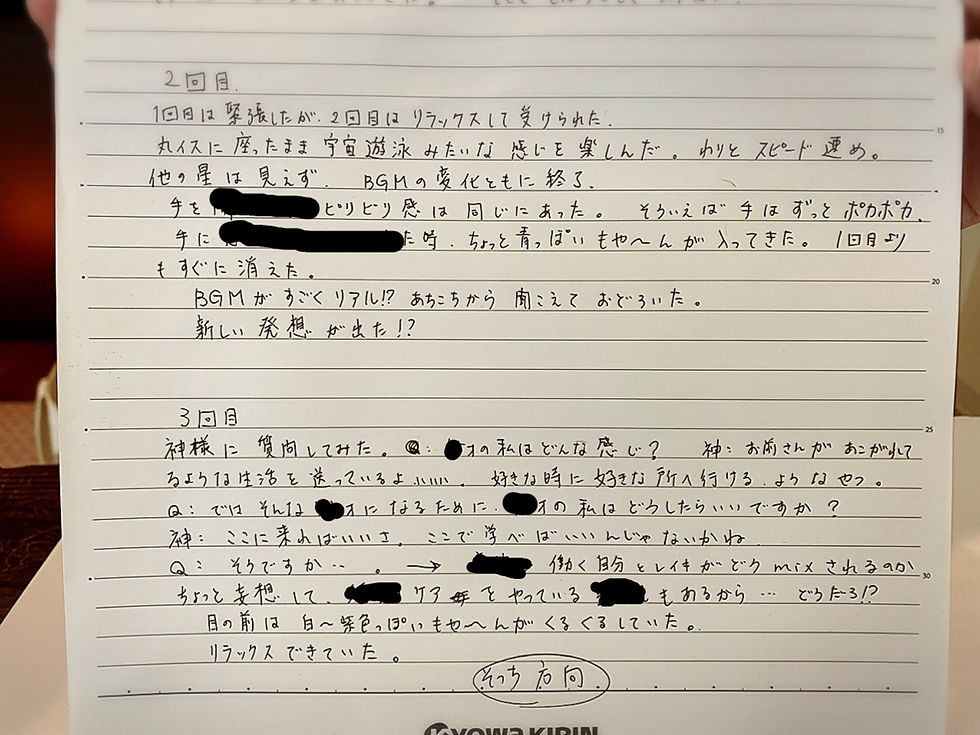 2回目.
1回目は緊張したが、2回目はリラックスして受けられた.
丸イスに座ったまま宇宙遊泳みたいな感じを楽しんだ。わりとスピード速め。
15
他の星は見えず. BGMの変化ともに終了.
手を ピリピリ感は同じにあった。そういえば手はずっとポカポカ.
手に た時、ちょっと青っぽいもや〜んが入ってきた。1回目より
もすぐに消えた。
20
BGMがすごくリアル!? あちこちから聞こえておどろいた。
新しい発想が出た!?
3回目
25
神様に質問してみた。Q: オの私はどんな感じ? 神: お前さんがあこがれて
るような生活を送っているよ..... 好きな時に好きな所へ行ける、ようなやつ。
Q: ではそんな オになるために、 オの私はどうしたらいいですか?
神: ここに来ればいいさ. ここで学べばいいんじゃないかね
Q: そうですか… 。→ 働く自分とレイキがどうmixされるのか
30
ちょっと妄想して、 ケア をやっている もあるから… どうだろ!?
目の前は白〜紫色っぽいもや〜んがくるくるしていた。
リラックスできていた。
そっち方向
KYOWA KIRIN